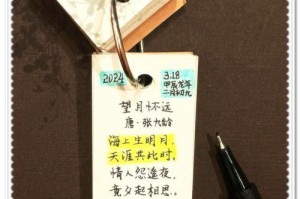 2024
3.18
甲辰龙年
二月初九
望月怀远
唐·张九龄
海上生明月,
天涯共此时。
情人怨遥夜,
竟夕起相思。